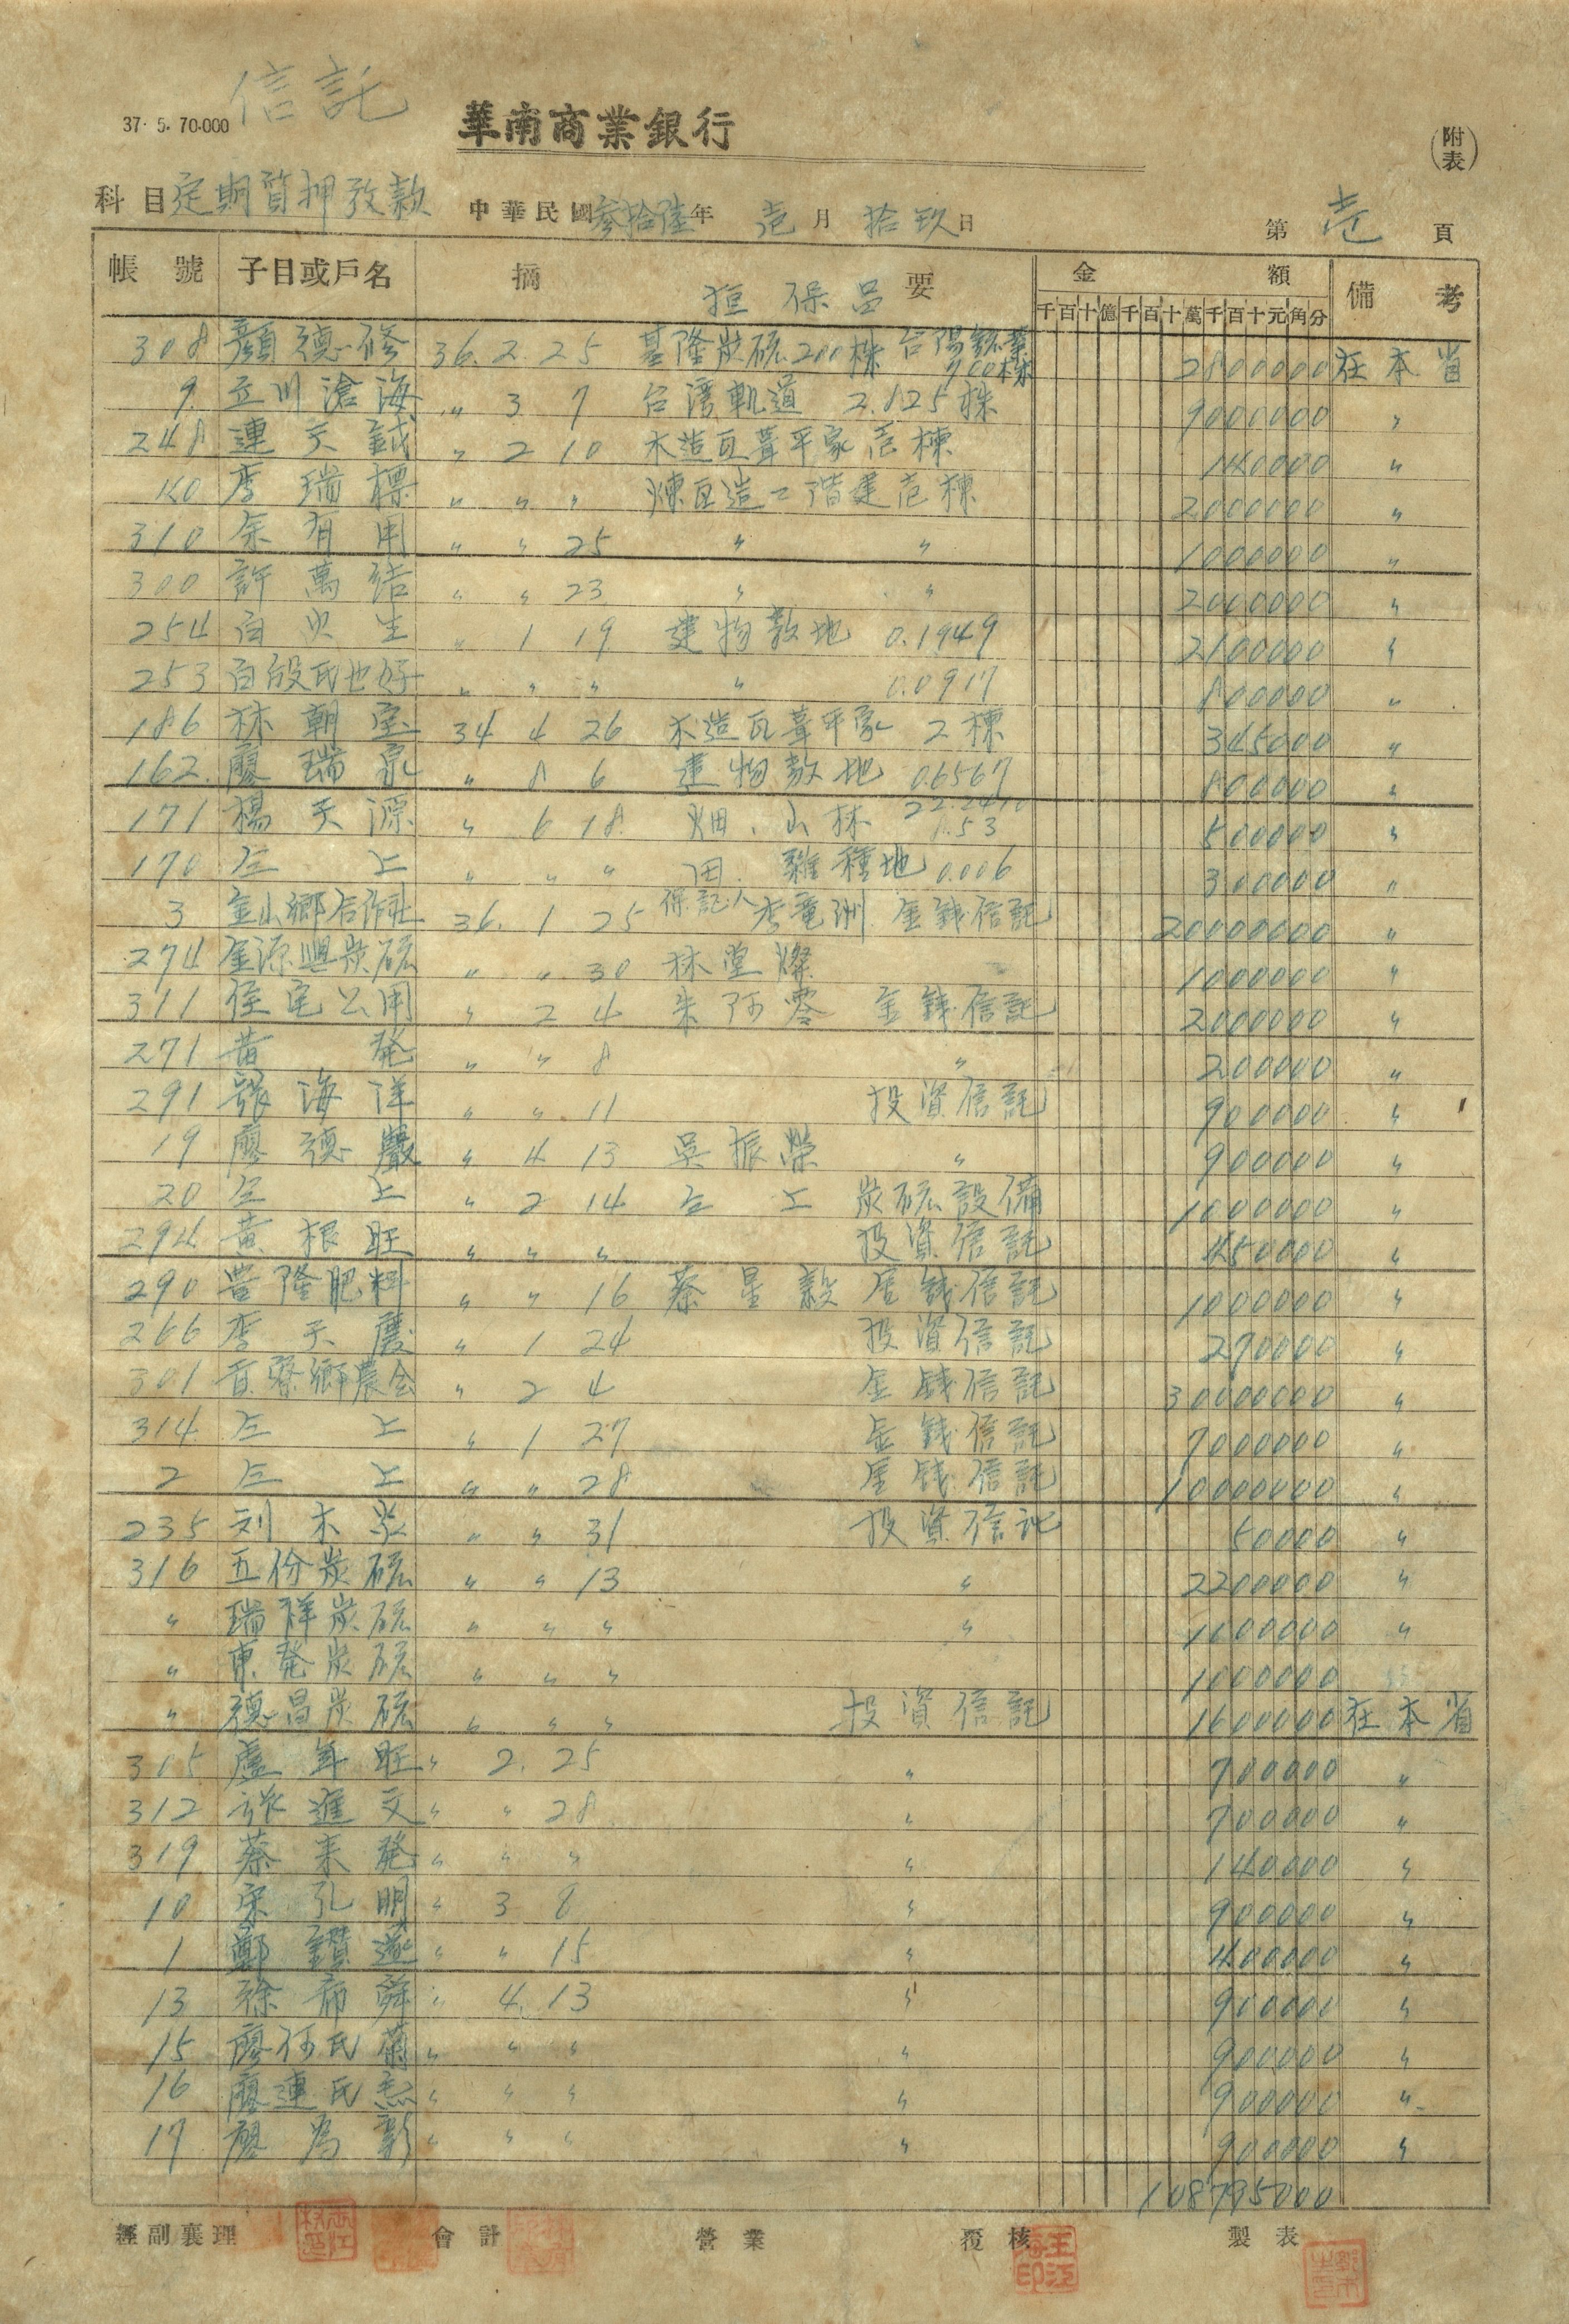 信託
37. 5. 70.000
華南商業銀行
(附表)
科目 定期質押放款 中華民國 參拾陸年 壱月 拾玖日 第 壱 頁
帳號 子目或戶名 摘要 金額 備考
担保品 千百十億千百十萬千百十元角分
308 顏德修 36. 2. 25 基隆炭砿 200株 台陽鉱業 700株 2800000 在本省
9 立川滄海 〃 3 7 台湾軌道 2.125株 9000000 〃
248 連天鉞 〃 2 10 木造瓦葺平家壱棟 140000 〃
40 李瑞標 〃 〃 〃 煉瓦造二階建壱棟 2000000 〃
310 余有用 〃 〃 25 〃 〃 1000000 〃
300 許萬結 〃 〃 23 〃 〃 2000000 〃
254 白火生 〃 1 19 建物敷地 0.1949 2100000 〃
253 白殷氏也好 〃 〃 〃 〃 0.0917 800000 〃
186 林朝宝 34 4 26 木造瓦葺平家 2棟 345000 〃
162 廖瑞泉 〃 8 6 建物敷地 0.6567 800000 〃
171 楊天源 〃 6 18 畑、山林 1.53 500000 〃
170 仝上 〃 〃 〃 田 雜種地 0.006 300000 〃
3 金山鄉合作社 36. 1 25 保記人 李竜洲 金銭信託 20000000 〃
274 金源興炭砿 〃 〃 30 林堂燦 1000000 〃
311 住宅公用 〃 2 4 朱阿零 金銭信託 2000000 〃
271 黄発 〃 〃 8 〃 200000 〃
291 張海洋 〃 〃 11 投資信託 900000 〃
19 廖德巖 〃 4 13 吳振榮 〃 900000 〃
20 仝上 〃 2 14 仝上 炭砿設備 1000000 〃
294 黄根旺 〃 〃 〃 投資信託 450000 〃
290 豊隆肥料 〃 〃 16 蔡星穀 金銭信託 1000000 〃
266 李天慶 〃 1 24 投資信託 290000 〃
301 貢寮鄉農会 〃 2 4 金銭信託 30000000 〃
314 仝上 〃 1 27 金銭信託 7000000 〃
2 仝上 〃 〃 28 金銭信託 10000000 〃
235 刘木 〃 〃 31 投資信託 50000 〃
316 五份炭砿 〃 〃 13 〃 2200000 〃
〃 瑞祥炭砿 〃 〃 〃 〃 1600000 〃
〃 東発炭砿 〃 〃 〃 1000000
〃 德昌炭砿 〃 〃 〃 投資信託 1600000 在本省
315 盧年旺 〃 2. 25 〃 700000 〃
312 張進文 〃 〃 28 〃 700000 〃
319 蔡来発 〃 〃 〃 〃 140000 〃
10 宋孔明 〃 3 8 〃 900000 〃
1 鄭讃 〃 〃 15 〃 400000 〃
13 徐 舜 〃 4. 13 〃 900000 〃
15 廖何氏蘭 〃 〃 〃 〃 900000 〃
16 廖連氏 〃 〃 〃 〃 900000 〃
17 廖為彰 〃 〃 〃 〃 900000 〃
108795000
經副襄理 會計 營業 覆核 製表
王江海印